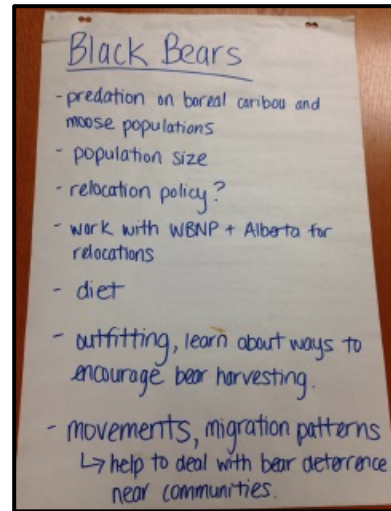 Black Bears
- predation on boreal caribou and
moose populations
- population size
- relocation policy?
- work with WBNP + Alberta for
relocations
- diet
- outfitting, learn about ways to
encourage bear harvesting.
- movements, migration patterns
↳ help to deal with bear deterrence
near communities.